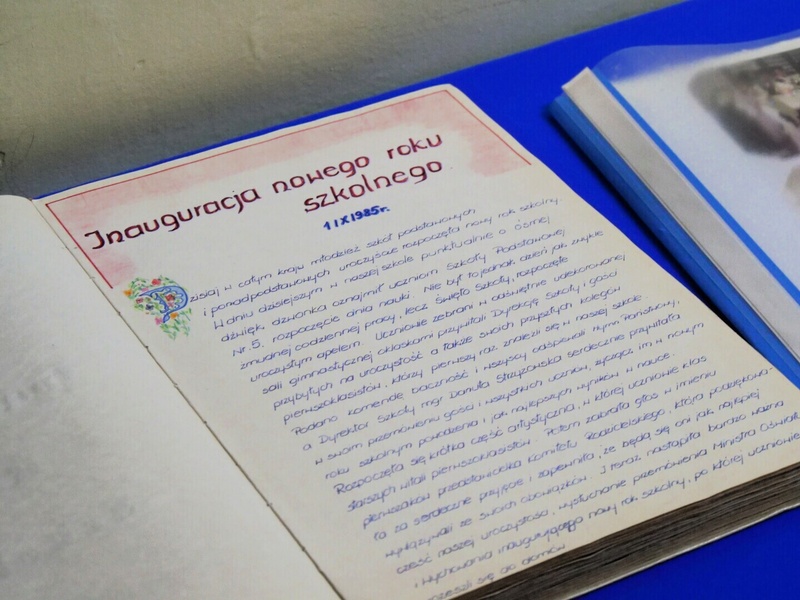 Inauguracja nowego roku
szkolnego
1 IX 1985r.
Dzisiaj w całym kraju młodzież szkół podstawowych
i ponadpodstawowych uroczyście rozpoczęła nowy rok szkolny.
W dniu dzisiejszym w naszej szkole punktualnie o ósmej
dźwięk dzwonka oznajmił uczniom Szkoły Podstawowej
Nr 5. rozpoczęcie dnia nauki. Nie był to jednak dzień jak zwykle
żmudnej codziennej pracy, lecz Święto Szkoły, rozpoczęte
uroczystym apelem. Uczniowie zebrani w odświętnie udekorowanej
sali gimnastycznej oklaskami przywitali Dyrekcję Szkoły i gości
przybyłych na uroczystość a także swoich przyszłych kolegów
pierwszoklasistów, którzy pierwszy raz znaleźli się w naszej szkole.
Podano komendę baczność i wszyscy odśpiewali hymn Państwowy,
a Dyrektor Szkoły mgr Danuta serdecznie przywitała
w swoim przemówieniu gości i wszystkich uczniów, życząc im w nowym
roku szkolnym powodzenia i jak najlepszych wyników w nauce.
Rozpoczęła się krótka część artystyczna, w której uczniowie klas
starszych witali pierwszoklasistów. Potem zabrała głos w imieniu
pierwszaków przedstawicielka Komitetu Rodzicielskiego, która podziękowa-
ła za serdeczne przyjęcie i zapewniła, że będą się oni jak najlepiej
wywiązywali ze swoich obowiązków. I teraz nastąpiła bardzo ważna
część naszej uroczystości, wysłuchanie przemówienia Ministra Oświaty
i Wychowania inaugurującego nowy rok szkolny, po której uczniowie
rozeszli się do domów.